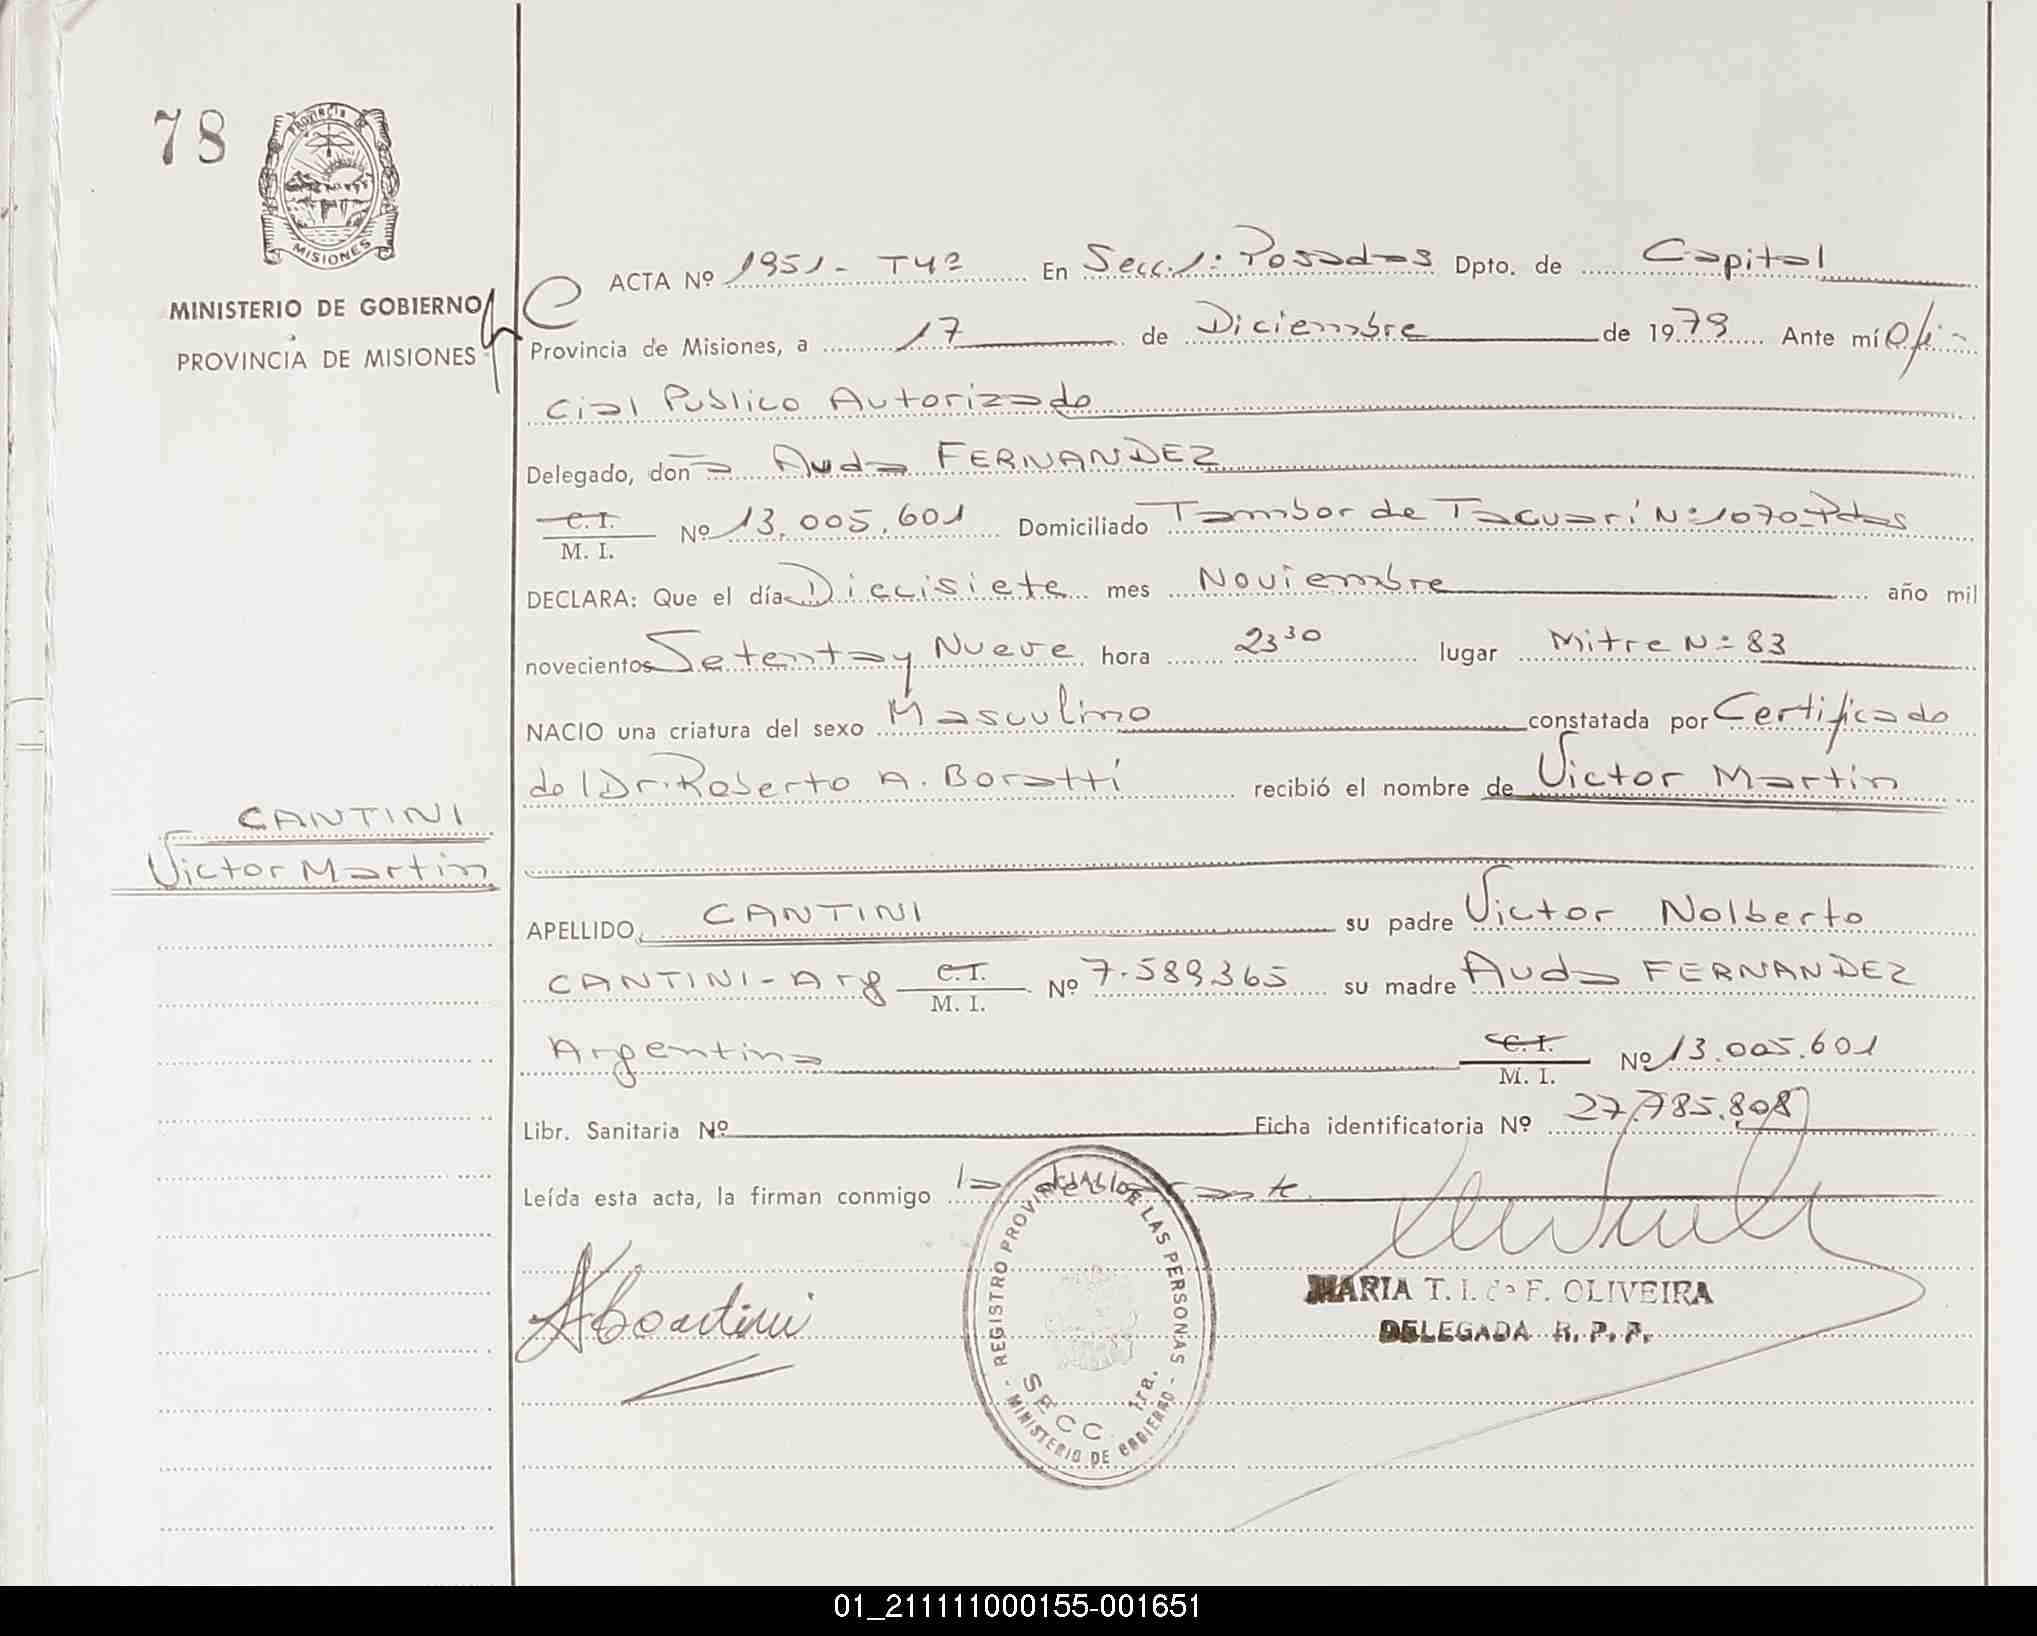 78
PROVINCIA DE
MISIONES
MINISTERIO DE GOBIERNO
PROVINCIA DE MISIONES
ACTA Nº 1951 - T4º En Secc. 1: Posadas Dpto. de Capital
Provincia de Misiones, a 17 de Diciembre de 1979 Ante mí Ofi-
cial Publico Autorizado
Delegado, doña Auda FERNANDEZ
C.I. / M. I. Nº 13.005.601 Domiciliado Tambor de Tacuarí Nº 1070 - Pdas
DECLARA: Que el día Diecisiete mes Noviembre año mil
novecientos Setenta y Nueve hora 23 30 lugar Mitre Nº 83
NACIO una criatura del sexo Masculino constatada por Certificado
del Dr. Roberto A. Boratti recibió el nombre de Victor Martin
CANTINI
Victor Martin
APELLIDO CANTINI su padre Victor Nolberto
CANTINI - Arg C.I. / M. I. Nº 7.589.365 su madre Auda FERNANDEZ
Argentina C.I. / M. I. Nº 13.005.601
Libr. Sanitaria Nº Ficha identificatoria Nº 27.785.808
Leída esta acta, la firman conmigo la declarante.
REGISTRO PROVINCIAL DE LAS PERSONAS
SECC. 1ra.
- MINISTERIO DE GOBIERNO -
MARIA T. I. de F. OLIVEIRA
DELEGADA R. P. P.
01_211111000155-001651